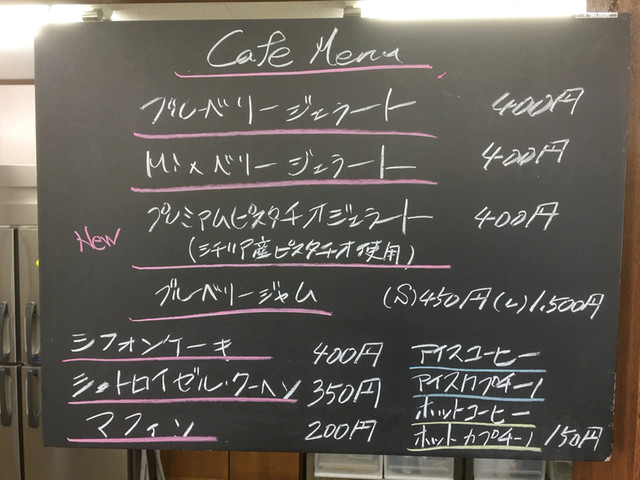 Cafe Menu
ブルーベリージェラート 400円
Mixベリージェラート 400円
New プレミアムピスタチオジェラート 400円
(シチリア産ピスタチオ使用)
ブルーベリージャム (S)450円(L)1,500円
シフォンケーキ 400円
シュトロイゼル・クーヘン 350円
マフィン 200円
アイスコーヒー
アイスカプチーノ
ホットコーヒー
ホットカプチーノ 150円